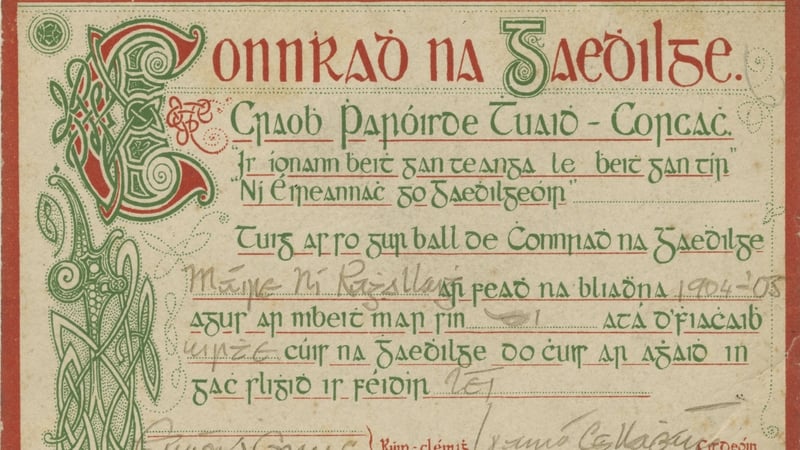 Connraḋ na Gaeḋilge.
Craoḃ Ṗaróirde Tuaiḋ - Corcaċ.
"Is ionann beiṫ gan teanga le beiṫ gan tír"
"Ní Éireannaċ go Gaeḋilgeóir"
Tuig as so gur ball de Ċonnraḋ na Gaeḋilge
Máire Ní Raġallaiġ ar feaḋ na bliaḋna 1904-'05
agus ar mbeiṫ mar sin di atá d'ḟiaċaiḃ
uirṫe cúis na Gaeḋilge do ċur ar aġaiḋ in
gaċ sliġiḋ is féidir léi